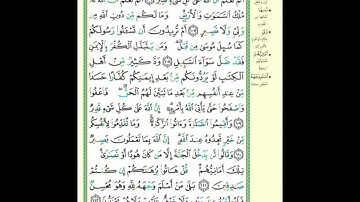 مُلْكُ السَّمَٰوَٰتِ وَالْأَرْضِ وَمَا لَكُم مِّن دُونِ اللَّهِ مِن
وَلِيٍّ وَلَا نَصِيرٍ ١٠٧ أَمْ تُرِيدُونَ أَن تَسْـَٔلُوا۟ رَسُولَكُمْ
كَمَا سُئِلَ مُوسَىٰ مِن قَبْلُ وَمَن يَتَبَدَّلِ الْكُفْرَ بِالْإِيمَٰنِ
فَقَدْ ضَلَّ سَوَآءَ السَّبِيلِ ١٠٨ وَدَّ كَثِيرٌ مِّنْ أَهْلِ
الْكِتَٰبِ لَوْ يَرُدُّونَكُم مِّن بَعْدِ إِيمَٰنِكُمْ كُفَّارًا حَسَدًا
مِّنْ عِندِ أَنفُسِهِم مِّن بَعْدِ مَا تَبَيَّنَ لَهُمُ الْحَقُّ فَاعْفُوا۟
وَاصْفَحُوا۟ حَتَّىٰ يَأْتِيَ اللَّهُ بِأَمْرِهِ إِنَّ اللَّهَ عَلَىٰ كُلِّ شَيْءٍ قَدِيرٌ
١٠٩ وَأَقِيمُوا۟ الصَّلَوٰةَ وَءَاتُوا۟ الزَّكَوٰةَ وَمَا تُقَدِّمُوا۟ لِأَنفُسِكُم
مِّنْ خَيْرٍ تَجِدُوهُ عِندَ اللَّهِ إِنَّ اللَّهَ بِمَا تَعْمَلُونَ بَصِيرٌ
١١٠ وَقَالُوا۟ لَن يَدْخُلَ الْجَنَّةَ إِلَّا مَن كَانَ هُودًا أَوْ نَصَٰرَىٰ
تِلْكَ أَمَانِيُّهُمْ قُلْ هَاتُوا۟ بُرْهَٰنَكُمْ إِن كُنتُمْ
صَٰدِقِينَ ١١١ بَلَىٰ مَنْ أَسْلَمَ وَجْهَهُ لِلَّهِ وَهُوَ مُحْسِنٌ